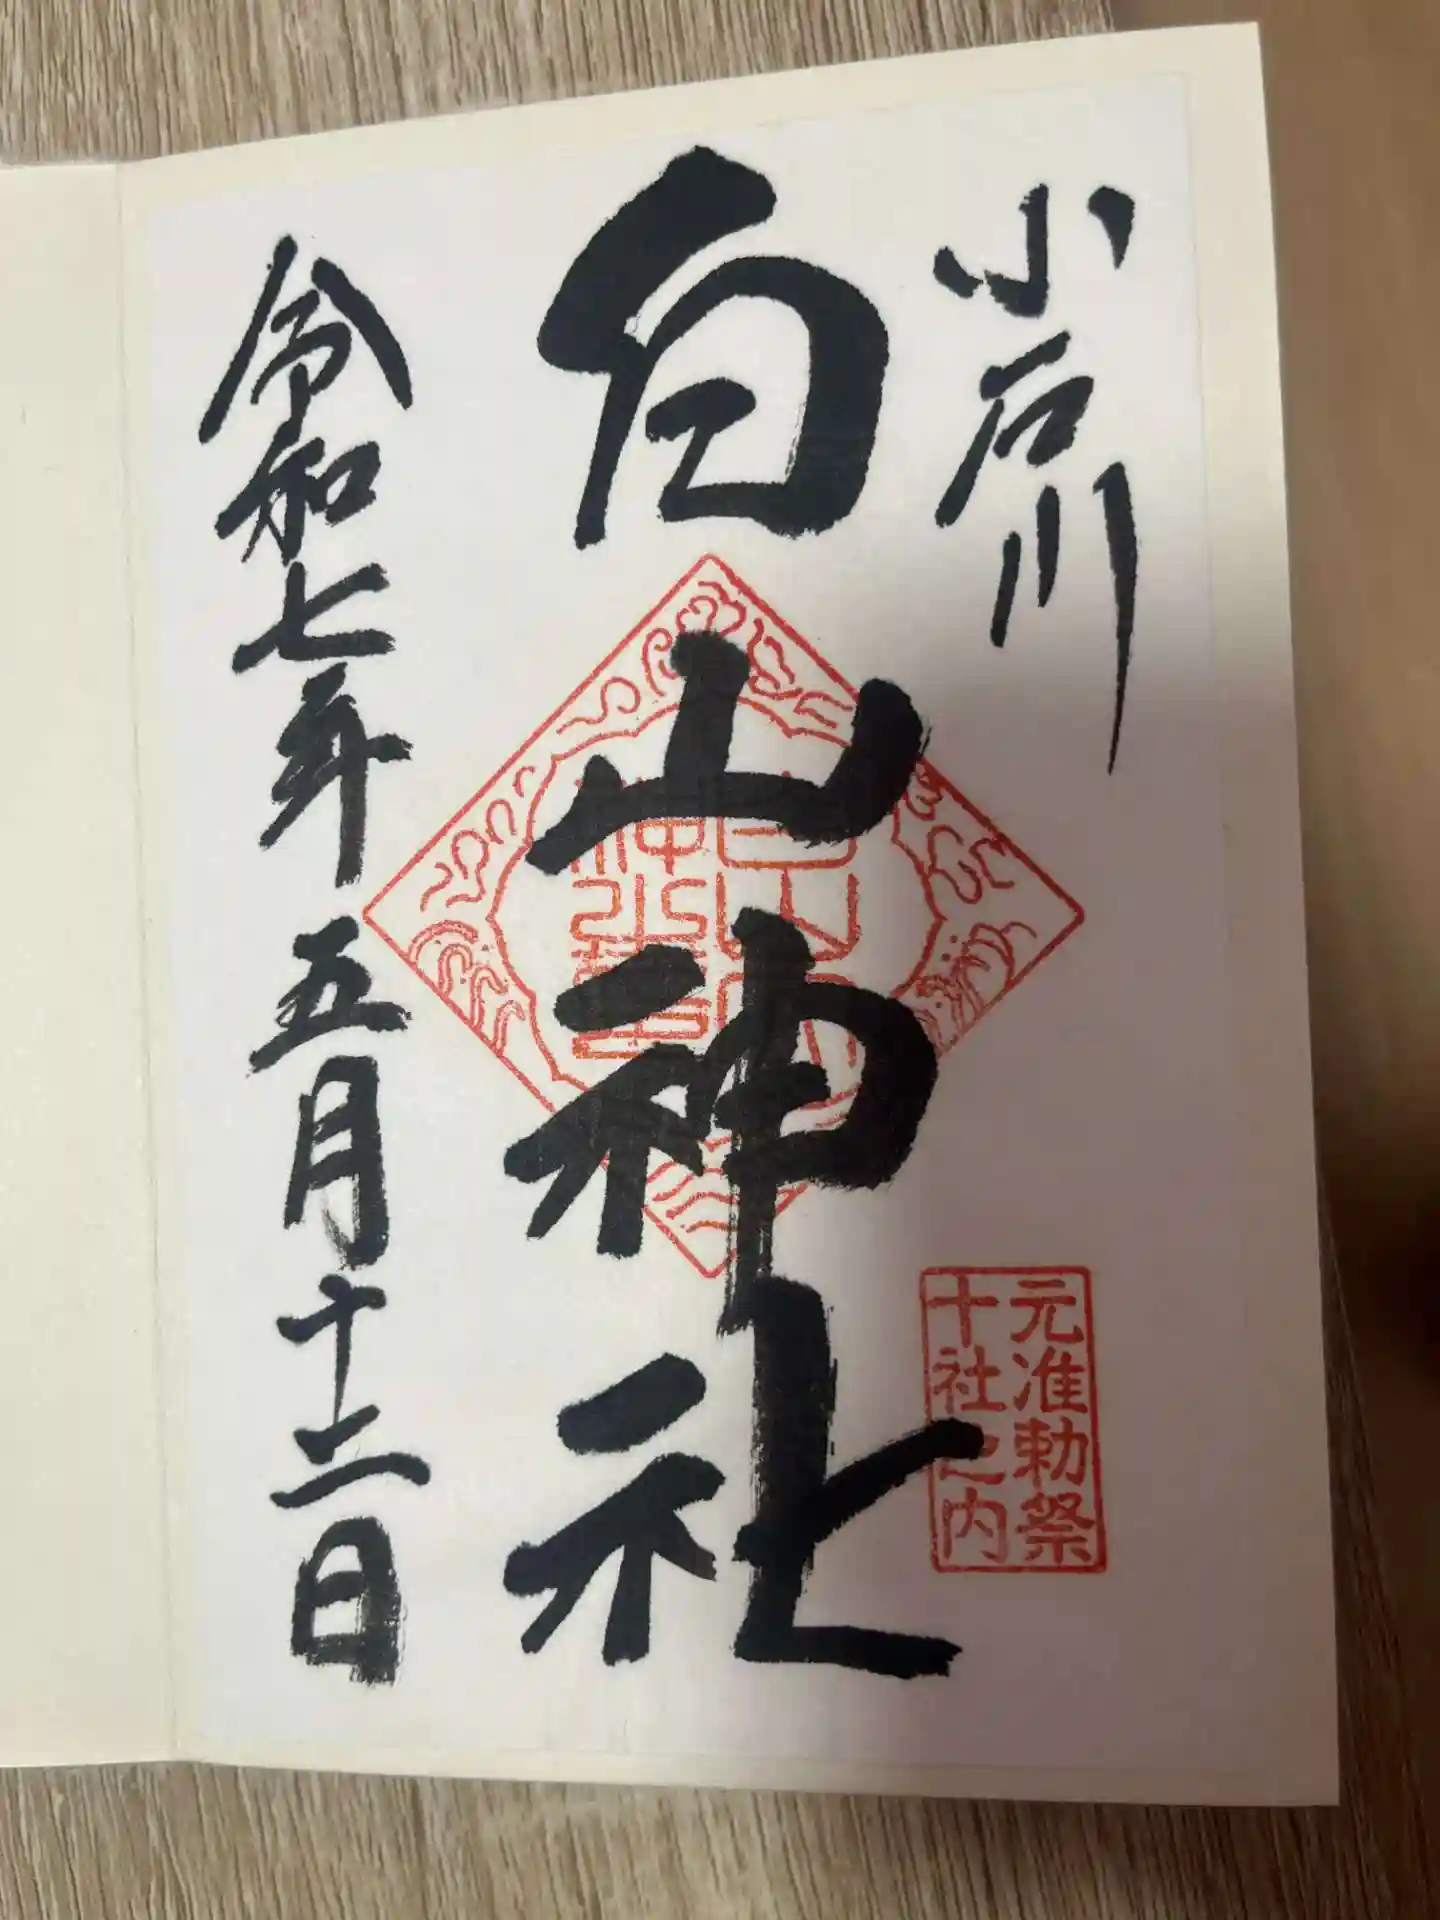 小石川
白山神社
令和七年五月十二日
元准勅祭
十社之内